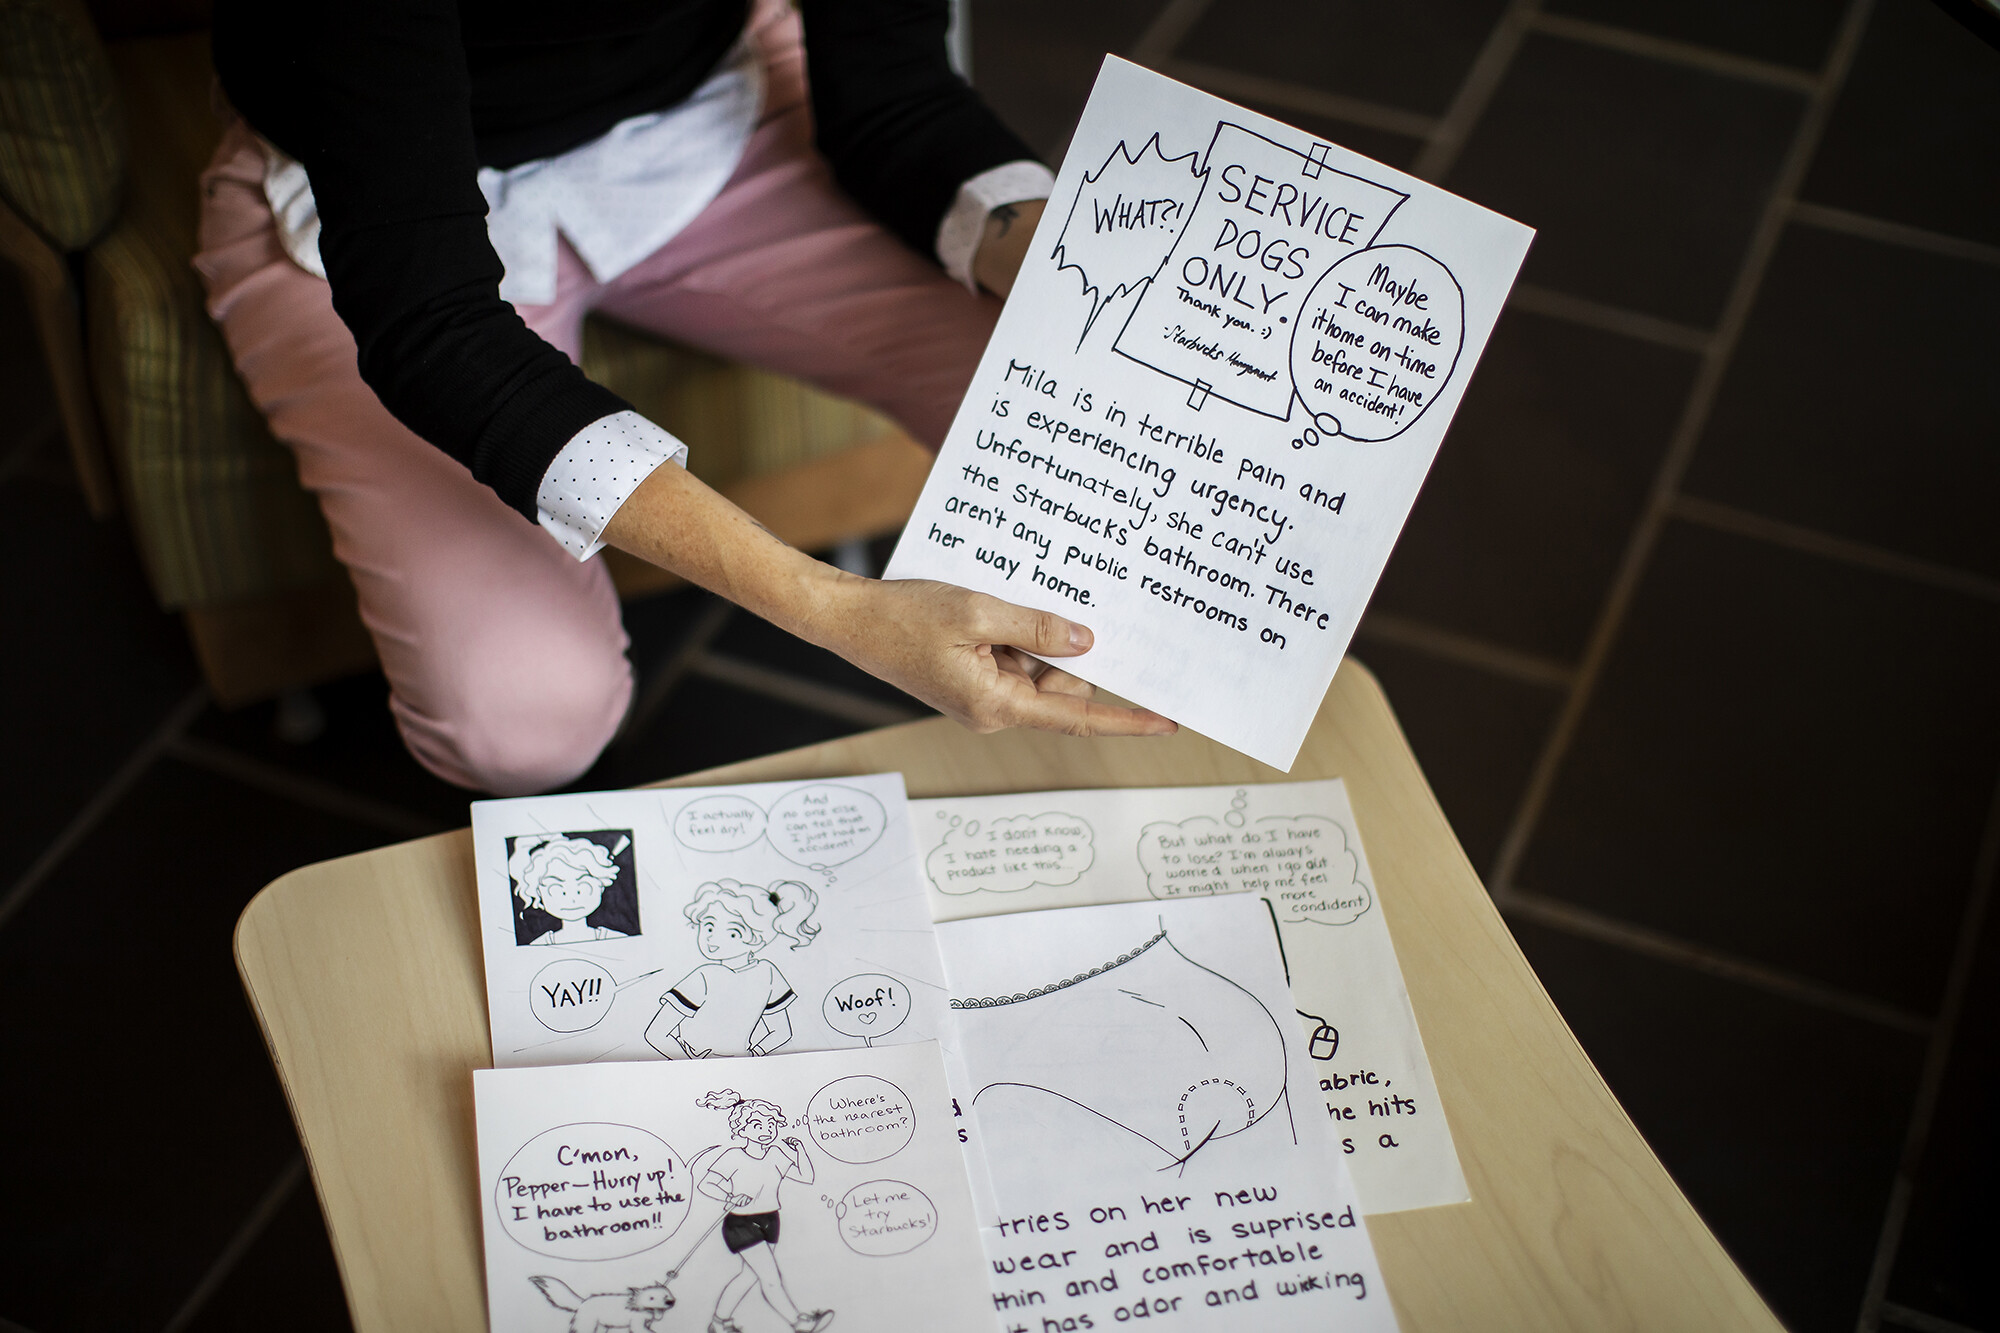 WHAT?!
SERVICE
DOGS
ONLY.
Thank you. :)
-Starbucks Management
Maybe
I can make
it home on time
before I have
an accident!
Mila is in terrible pain and
is experiencing urgency.
Unfortunately, she can't use
the Starbucks bathroom. There
aren't any public restrooms on
her way home.
I actually
feel dry!
And
no one else
can tell that
I just had an
accident!
!
YAY!!
Woof!
♡
I don't know,
I hate needing a
product like this...
But what do I have
to lose? I'm always
worried when I go out.
It might help me feel
more
condident
abric,
he hits
s a
d
s
C'mon,
Pepper—Hurry up!
I have to use the
bathroom!!
Where's
the nearest
bathroom?
Let me
try
Starbucks!
tries on her new
wear and is suprised
thin and comfortable
it has odor and wicking